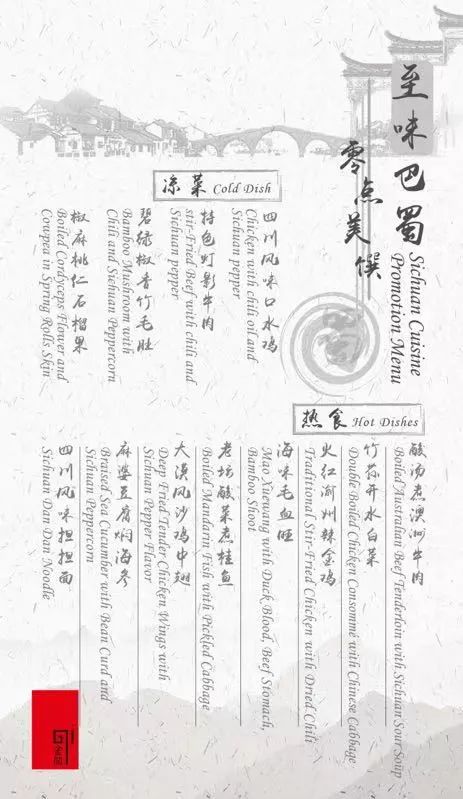 至味巴蜀
零点美馔
Sichuan Cuisine
Promotion Menu
凉菜 Cold Dish
四川风味口水鸡
Chicken with chili oil and
Sichuan pepper
特色灯影牛肉
stir-Fried Beef with chili and
Sichuan pepper
碧绿椒香竹毛肚
Bamboo Mushroom with
Chili and Sichuan Peppercorn
椒麻桃仁石榴果
Boiled Cordyceps Flower and
Cowpea in Spring Rolls Skin
热食 Hot Dishes
酸汤煮澳洲牛肉
Boiled Australian Beef Tenderloin with Sichuan Sour Soup
竹荪开水白菜
Double Boiled Chicken Consommé with Chinese Cabbage
火红渝州辣金鸡
Traditional Stir-Fried Chicken with Dried Chili
海味毛血旺
Mao Xuewang with Duck Blood, Beef Stomach,
Bamboo Shoot
老坛酸菜煮桂鱼
Boiled Mandarin Fish with Pickled Cabbage
大漠风沙鸡中翅
Deep Fried Tender Chicken Wings with
Sichuan Pepper Flavor
麻婆豆腐焖海参
Braised Sea Cucumber with Bean Curd and
Sichuan Peppercorn
四川风味担担面
Sichuan Dan Dan Noodle